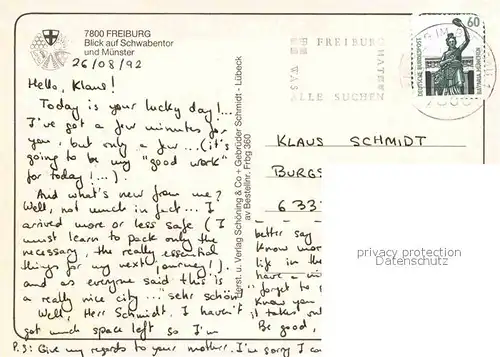 7800 FREIBURG
Blick auf Schwabentor
und Münster
26/08/92
Hello, Klaus!
Today is your lucky day!...
I've got a few minutes for
you, but only a few... (it's
going to be my "good work"
for today!...)
And what's new from me?
Well, not much in fact... I
arrived more or less safe (I
must learn to pack only the
necessary, the really essential
things for my next journey!),
and as everyone said this is
a really nice city... sehr schön!
Well, Herr Schmidt, I haven't
got much space left so I'm
P.S: Give my regards to your mother. I'm sorry I
Horst. u. Verlag Schöning & Co + Gebrüder Schmidt - Lübeck
av Bestellnr. Frbg 360
FREIBURG
HAT
WAS
ALLE SUCHEN
60
DEUTSCHE BUNDESPOST
BAVARIA MÜNCHEN
KLAUS SCHMIDT
BURGS
633
better say
Know mor
life in the
have a
"forget to
Know you
it takes
Be good,
privacy protection
Datenschutz